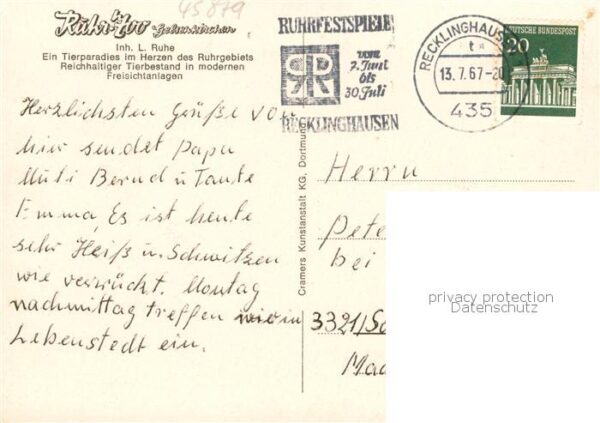 45879
Ruhr-Zoo Gelsenkirchen
Inh. L. Ruhe
Ein Tierparadies im Herzen des Ruhrgebiets
Reichhaltiger Tierbestand in modernen
Freisichtanlagen
RUHRFESTSPIELE
VOM
7. Juni
bis
30. Juli
RECKLINGHAUSEN
RECKLINGHAUSEN
13.7.67-20
435
20
DEUTSCHE BUNDESPOST
Herzlichsten Grüße von
hier sendet Papa
Mutti Bernd u Tante
Emma, Es ist heute
sehr Heiß u. Schwitzen
wie verrückt. Montag
nachmittag treffen wir in
Lebenstedt ein.
Cramers Kunstanstalt KG, Dortmund
Herrn
Pete
bei
3321/Sa
Mad
privacy protection
Datenschutz